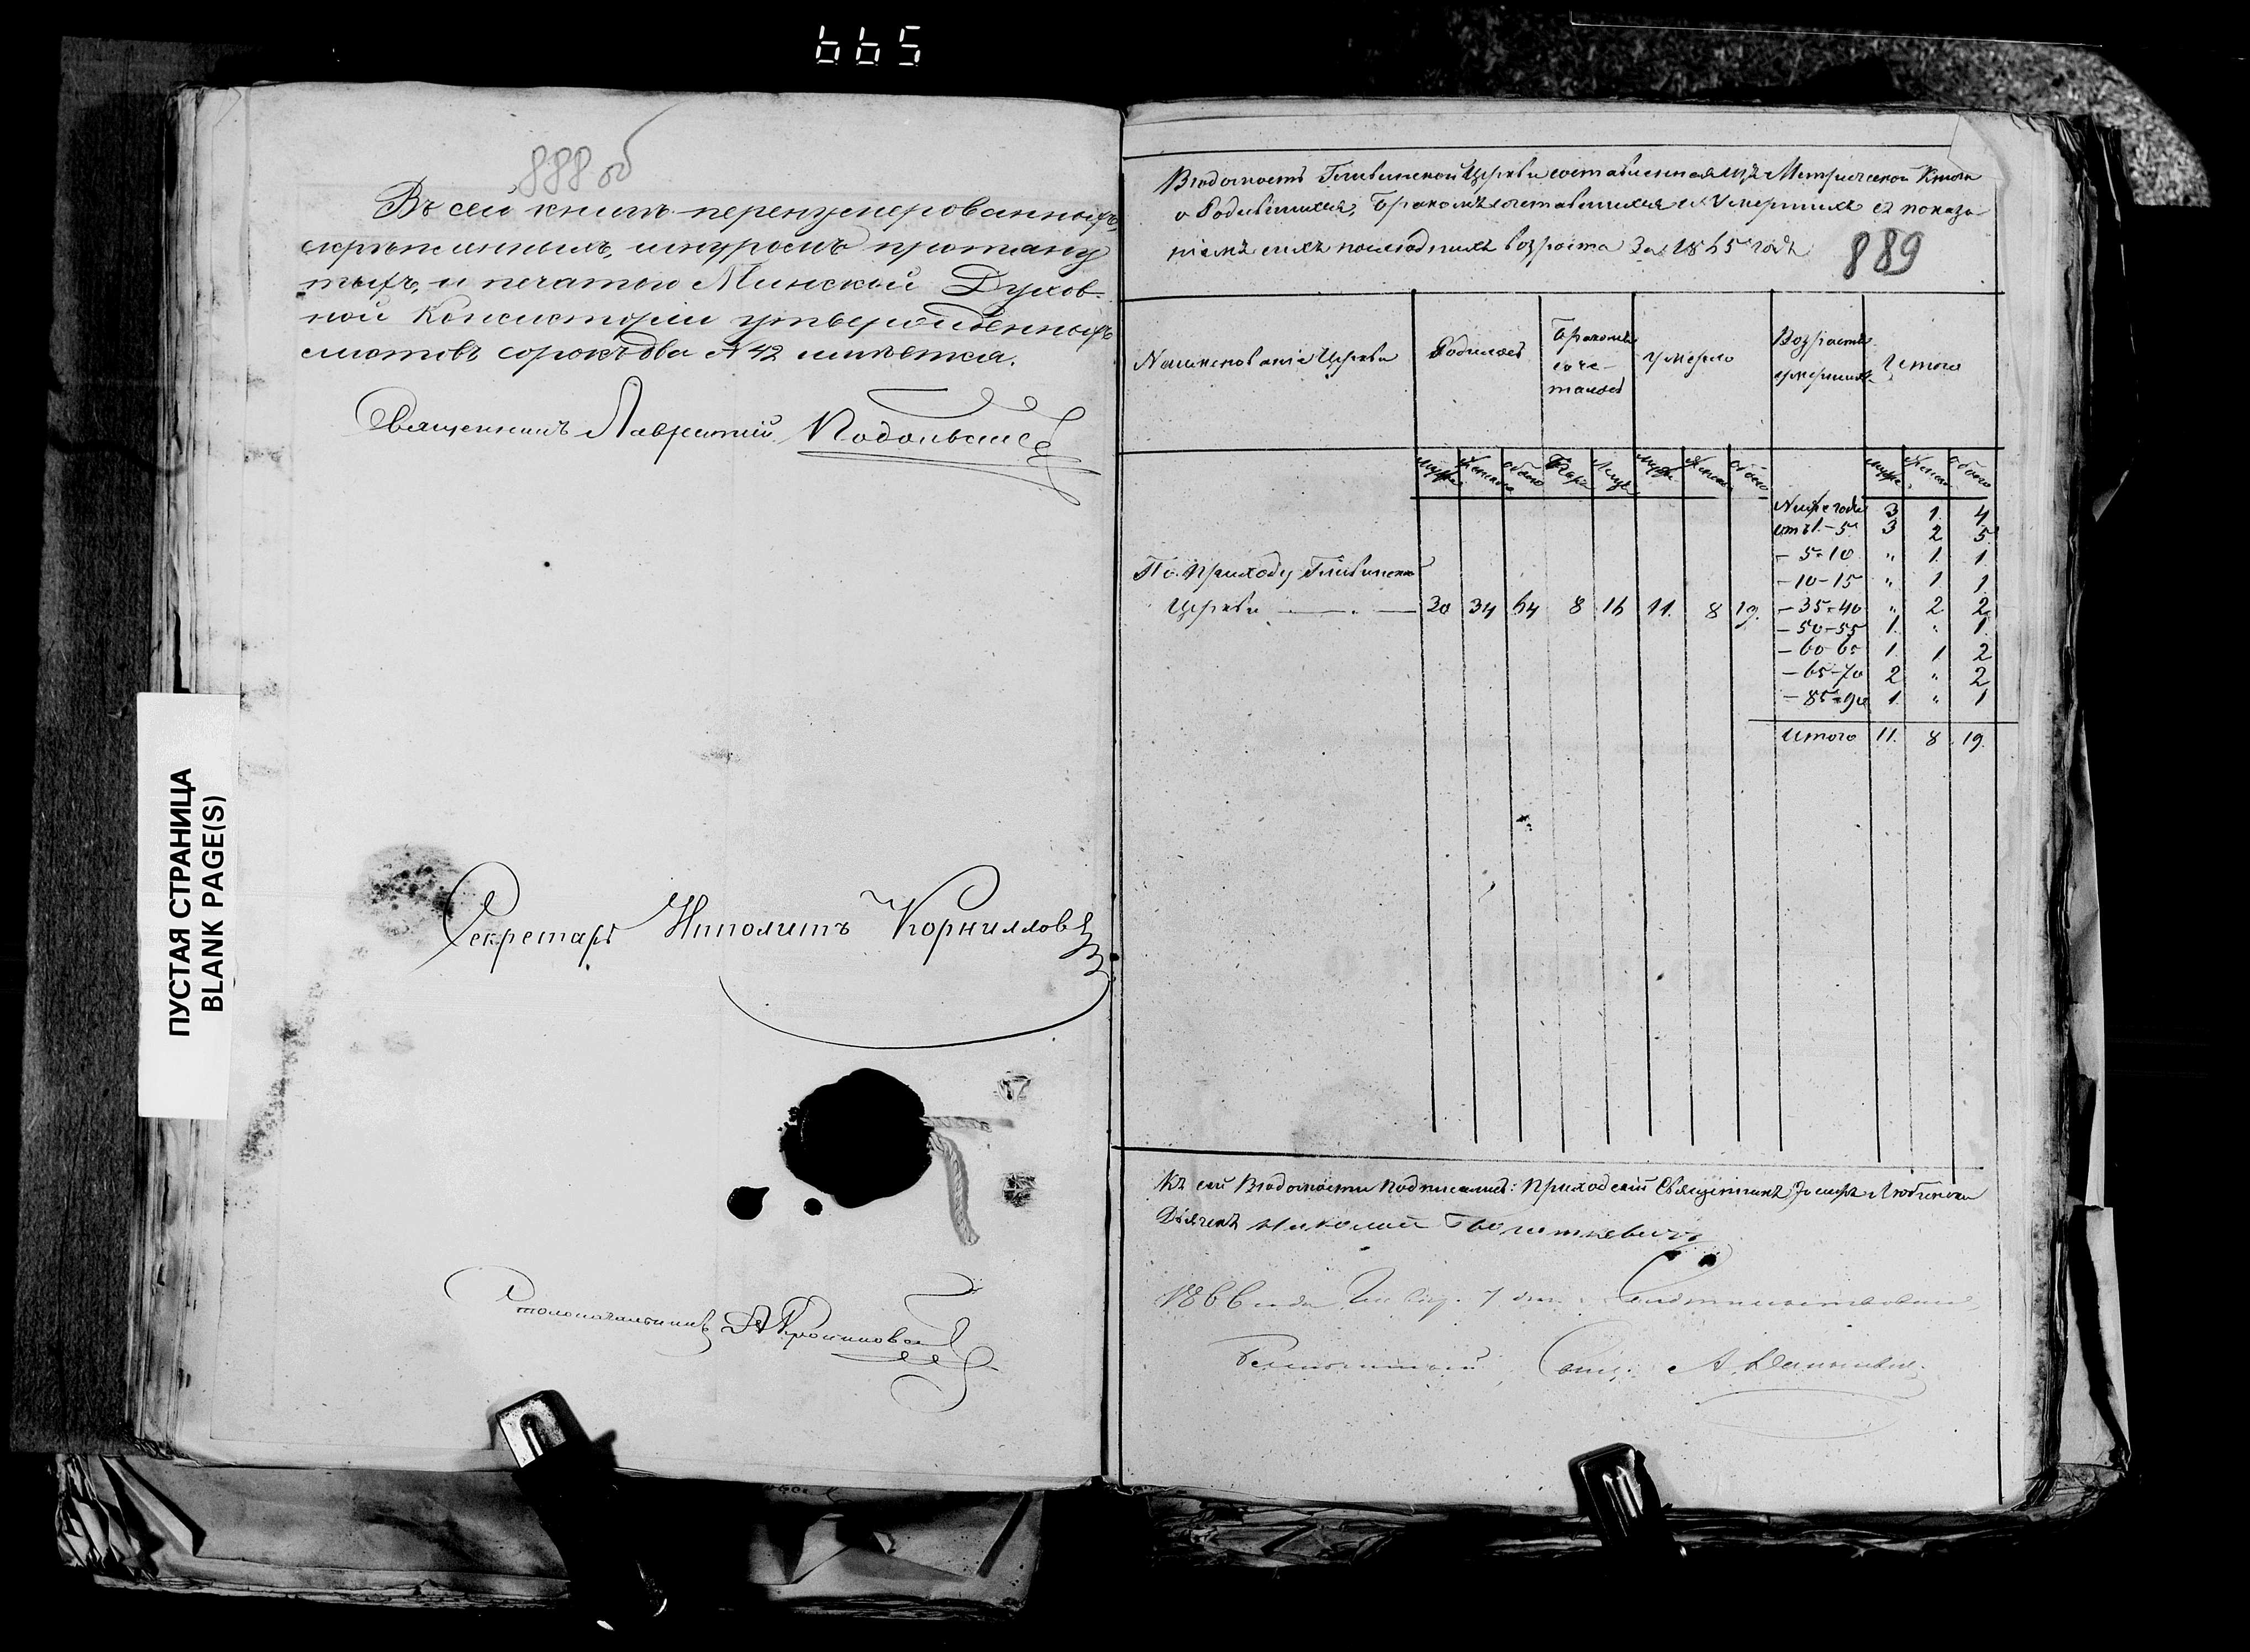 665
888 об
Въ сей книгѣ перенумерованныхъ,
скрѣпленныхъ, шнуромъ протяну
тыхъ, и печатью Минской Духов-
ной Консисторіи утвержденныхъ
листовъ сорокъ два № 42 имѣется.
Священникъ Лаврентій
Секретарь Ипполитъ Корниловъ
Столоначальникъ
ПУСТАЯ СТРАНИЦА
BLANK PAGE(S)
Вѣдомость Гливинской Церкви составленная изъ Метрической Книги
о Родившихся, Бракомъ сочетавшихся и Умершихъ съ показа-
ніемъ сихъ послѣднихъ возраста За 1865 годъ
889
Наименованіе Церкви Родилось Бракомъ соче- талось Умерло Возрастъ умершихъ Итого
Мужс Женска Обоего Браз Лицъ Мужс Женск Обоего Мужс Женск Обоего
Ниже года 3 1 4
отъ 1.-5 3 2 5
- 5-10 " 1 1
- 10-15 " 1 1
По Приходу Гливинской
Церкви 30 34 64 8 16 11 8 19. - 35-40 " 2 2
- 50-55 1 " 1
- 60-65 1 1 2
- 65-70 2 " 2
- 85-90 1 " 1
Итого 11 8 19
Къ сей Вѣдомости подписались: Приходскій Священникъ Іосифъ
Дьячекъ Николай
1866 года 7 дня Свидѣтельствовалъ,
Благочинный Свящ. А.